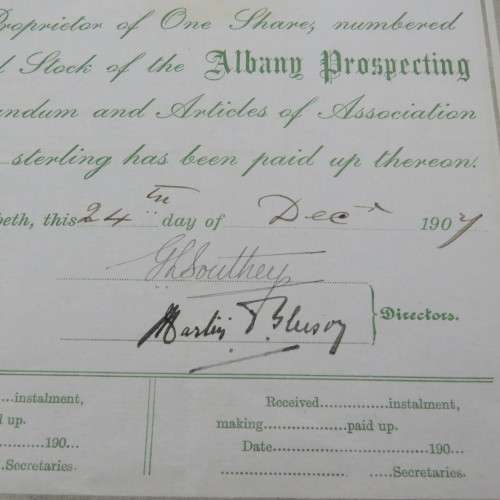 Proprietor of One Share, numbered
Stock of the Albany Prospecting
andum and Articles of Association
sterling has been paid up thereon.
beth, this 24th day of Decr 1907
Directors.
...instalment,
d up.
...........190...
...Secretaries.
Received...............instalment,
making..................paid up.
Date.................................190...
..........................  .....Secretaries.